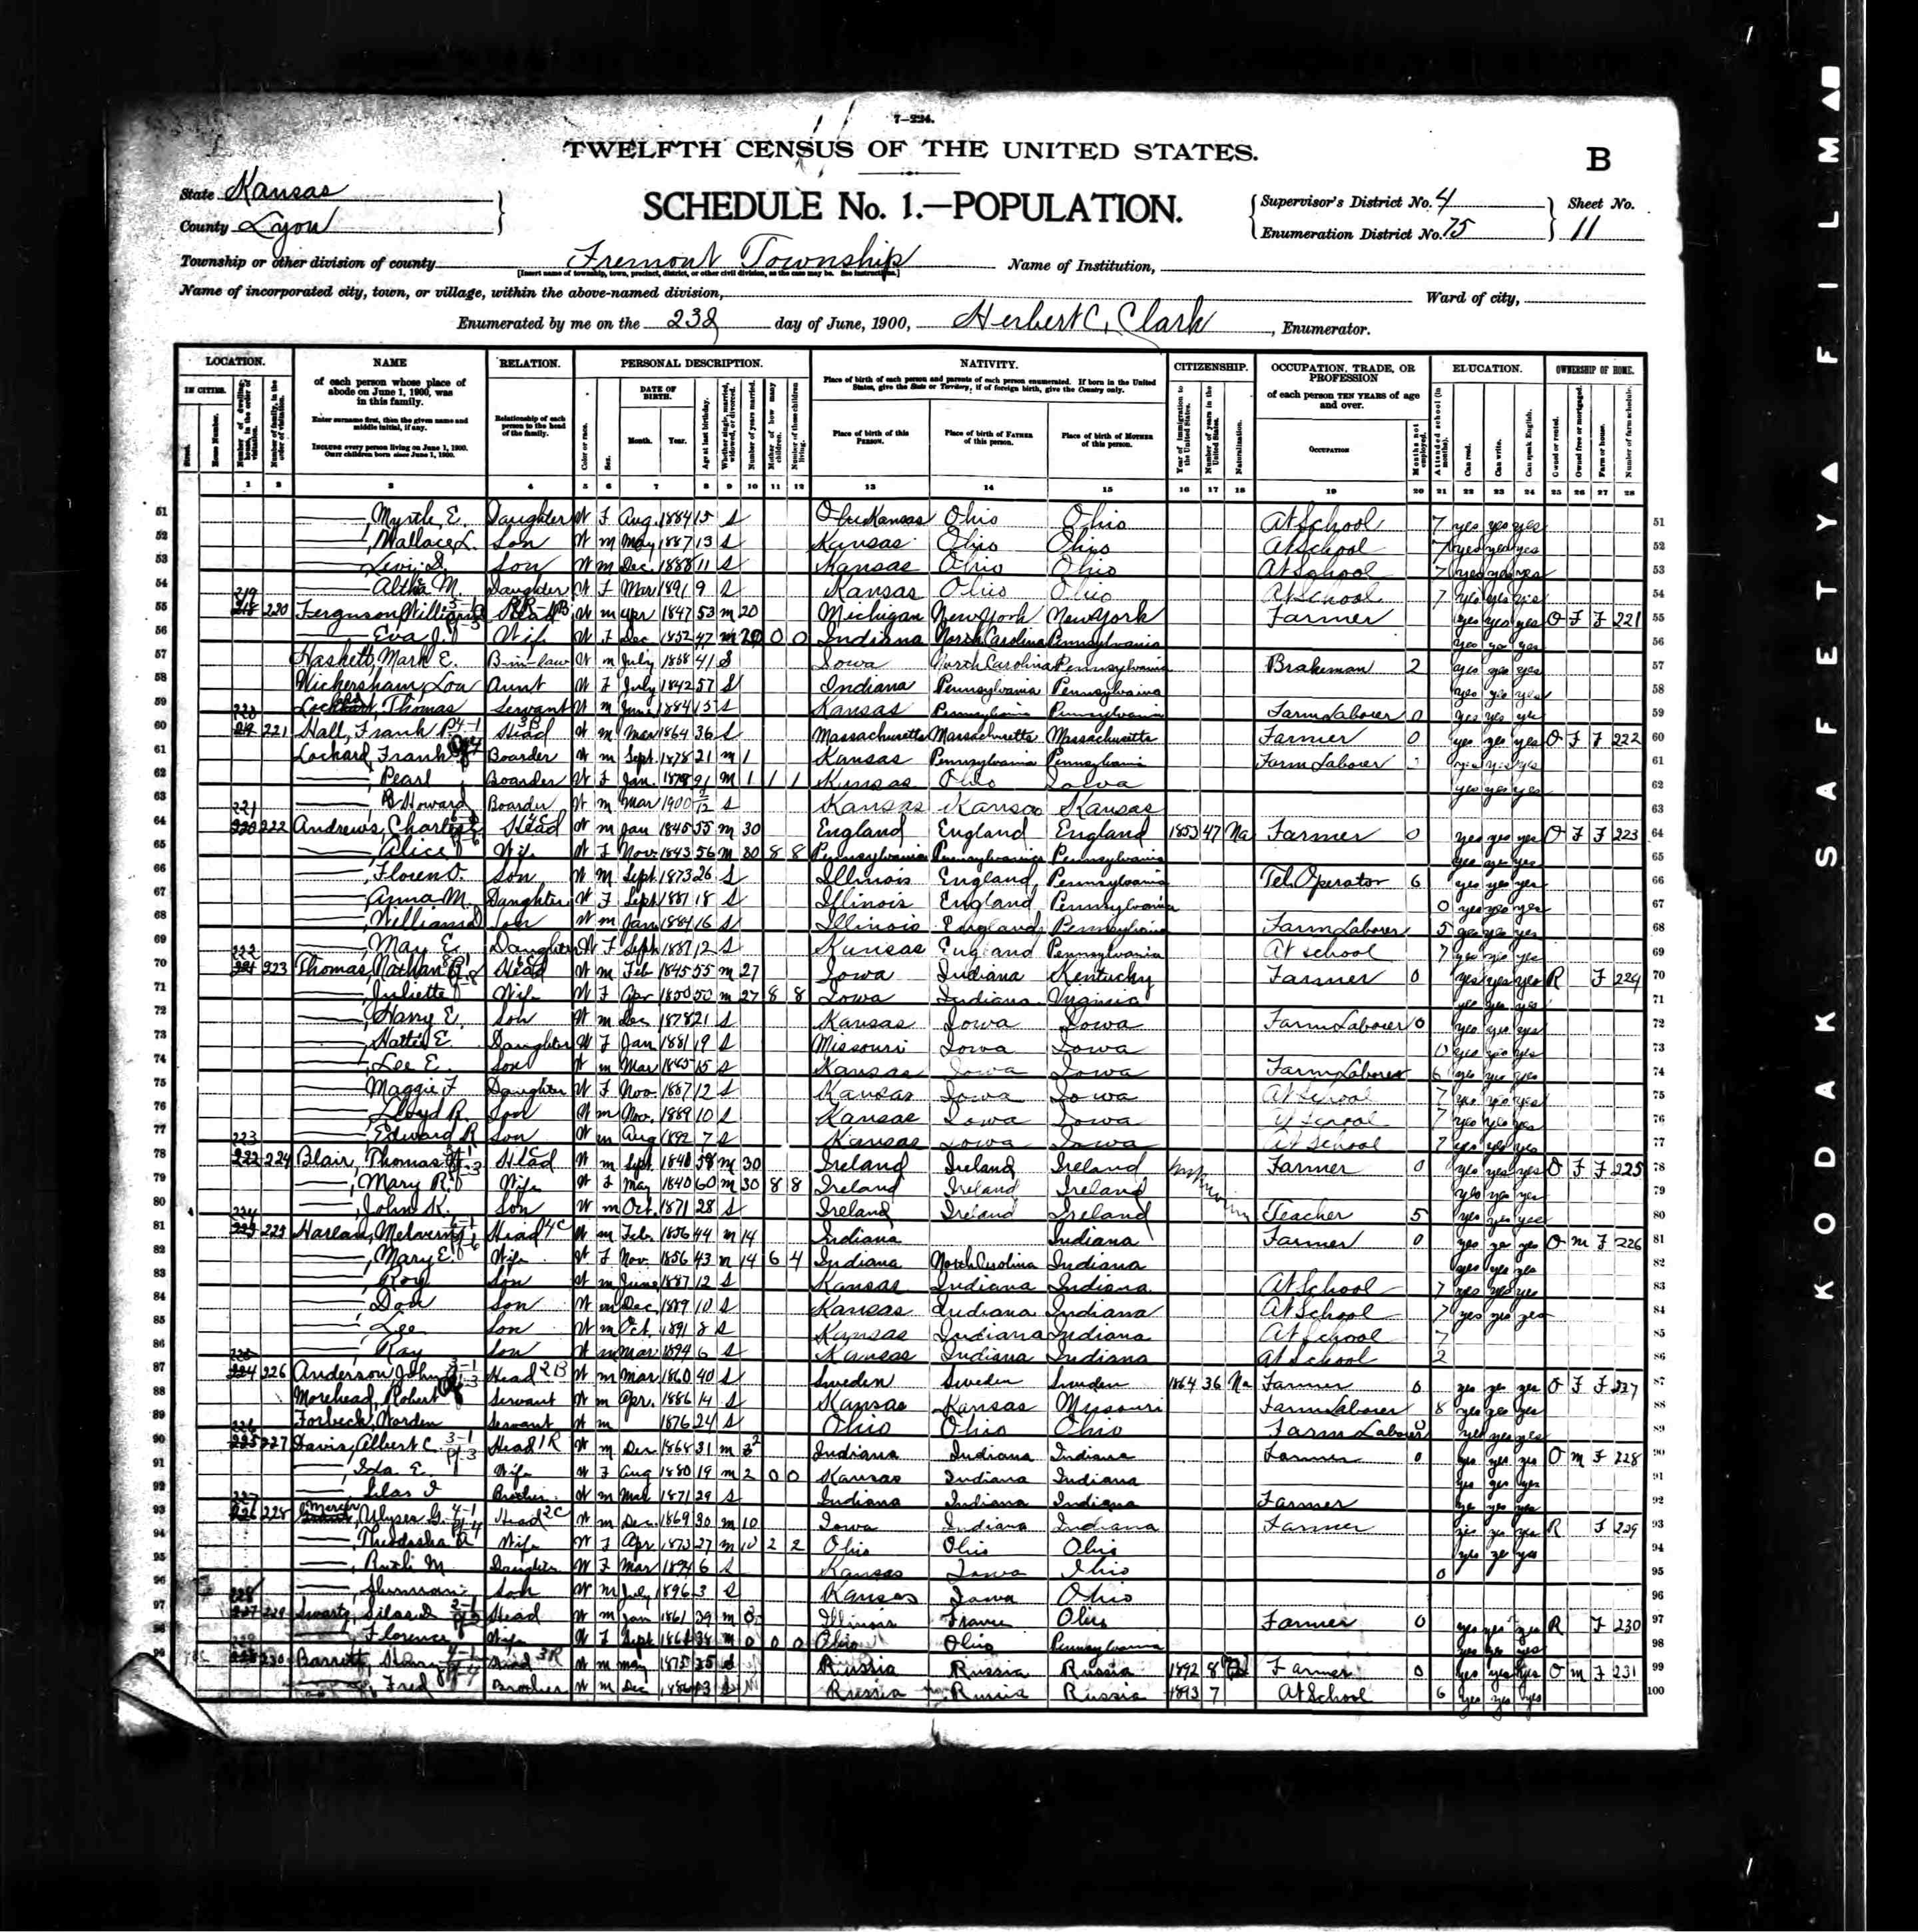 7-224.
TWELFTH CENSUS OF THE UNITED STATES.
B
State Kansas
County Lyon
SCHEDULE No. 1.—POPULATION.
Supervisor's District No. 4
Enumeration District No. 75
Sheet No.
11
Township or other division of county Fremont Township
[Insert name of township, town, precinct, district, or other civil division, as the case may be. See instructions.]
Name of Institution,
Name of incorporated city, town, or village, within the above-named division,
Ward of city,
Enumerated by me on the 23d day of June, 1900, Herbert C. Clark, Enumerator.
LOCATION. NAME RELATION. PERSONAL DESCRIPTION. NATIVITY. CITIZENSHIP. OCCUPATION, TRADE, OR PROFESSION EDUCATION. OWNERSHIP OF HOME.
IN CITIES. of each person whose place of abode on June 1, 1900, was in this family.
Enter surname first, then the given name and middle initial, if any.
INCLUDE every person living on June 1, 1900. OMIT children born since June 1, 1900.
Relationship of each person to the head of the family.
DATE OF BIRTH. Month. Year.
Place of birth of each person and parents of each person enumerated. If born in the United States, give the State or Territory; if of foreign birth, give the Country only.
Place of birth of this PERSON. Place of birth of FATHER of this person. Place of birth of MOTHER of this person.
of each person TEN YEARS of age and over.
OCCUPATION
1 2 3 4 5 6 7 8 9 10 11 12 13 14 15 16 17 18 19 20 21 22 23 24 25 26 27 28
51 Myrtle E. Daughter W F Aug 1884 15 S Kansas Ohio Ohio At School 7 yes yes yes 51
52 Wallace L. Son W m May 1887 13 S Kansas Ohio Ohio At School 7 yes yes yes 52
53 Levi D. Son W m Dec 1888 11 S Kansas Ohio Ohio At School 7 yes yes yes 53
54 Altha M. Daughter W F Mar 1891 9 S Kansas Ohio Ohio At School 7 yes yes yes 54
55 220 Ferguson William Head W m Apr 1847 53 m 20 Michigan New York New York Farmer yes yes yes O F F 221 55
56 Eva J. Wife W F Dec 1852 47 m 20 0 0 Indiana North Carolina Pennsylvania yes yes yes 56
57 Haskett, Mark E. B-in-law W m July 1858 41 S Iowa North Carolina Pennsylvania Brakeman 2 yes yes yes 57
58 Wickersham, Lou Aunt W F July 1842 57 S Indiana Pennsylvania Pennsylvania yes yes yes 58
59 Thomas Servant W m June 1884 15 S Kansas Pennsylvania Pennsylvania Farm Laborer 0 yes yes yes 59
60 221 Hall, Frank P. Head W m Mar 1864 36 S Massachusetts Massachusetts Massachusetts Farmer 0 yes yes yes O F F 222 60
61 Lockard, Frank Boarder W m Sept 1878 21 m 1 Kansas Pennsylvania Pennsylvania Farm Laborer yes yes yes 61
62 Pearl Boarder W F Jan 21 m 1 1 1 Kansas Ohio Iowa yes yes yes 62
63 Howard Boarder W m Mar 1900 S Kansas Kansas Kansas 63
64 222 Andrews, Charles Head W m Jan 1845 55 m 30 England England England 1853 47 Na Farmer 0 yes yes yes O F F 223 64
65 Alice Wife W F Nov 1843 56 m 30 8 8 Pennsylvania Pennsylvania Pennsylvania yes yes yes 65
66 Floren O. Son W m Sept 1873 26 S Illinois England Pennsylvania Tel. Operator 6 yes yes yes 66
67 Anna M. Daughter W F Sept 1881 18 S Illinois England Pennsylvania 0 yes yes yes 67
68 William D Son W m Jan 1884 16 S Illinois England Pennsylvania Farm Laborer 5 yes yes yes 68
69 May E. Daughter W F Sept 1887 12 S Kansas England Pennsylvania At school 7 yes yes yes 69
70 223 Thomas, Nathan Head W m Feb 1845 55 m 27 Iowa Indiana Kentucky Farmer 0 yes yes yes R F 224 70
71 Juliette Wife W F Apr 1850 50 m 27 8 8 Iowa Indiana Virginia yes yes yes 71
72 Harry E. Son W m Dec 1878 21 S Kansas Iowa Iowa Farm Laborer 0 yes yes yes 72
73 Hattie E. Daughter W F Jan 1881 19 S Missouri Iowa Iowa 0 yes yes yes 73
74 Lee E. Son W m Mar 1885 15 S Kansas Iowa Iowa Farm Laborer 6 yes yes yes 74
75 Maggie F. Daughter W F Nov 1887 12 S Kansas Iowa Iowa At School 7 yes yes yes 75
76 Lloyd R. Son W m Nov. 1889 10 S Kansas Iowa Iowa At School 7 yes yes yes 76
77 Edward R Son W m Aug 1892 7 S Kansas Iowa Iowa At School 7 yes yes yes 77
78 224 Blair, Thomas Head W m Sept 58 m 30 Ireland Ireland Ireland Farmer 0 yes yes yes O F F 225 78
79 Mary R. Wife W F May 1840 60 m 30 8 8 Ireland Ireland Ireland yes yes yes 79
80 John K. Son W m Oct. 1871 28 S Ireland Ireland Ireland Teacher 5 yes yes yes 80
81 225 Harlan, Head W m Feb 1856 44 m 14 Indiana Indiana Farmer 0 yes yes yes O m F 226 81
82 Mary E. Wife W F Nov. 1856 43 m 14 6 4 Indiana North Carolina Indiana yes yes yes 82
83 Roy Son W m June 1887 12 S Kansas Indiana Indiana At School 7 yes yes yes 83
84 Don Son W m Dec 1889 10 S Kansas Indiana Indiana At School 7 yes yes yes 84
85 Lee Son W m Oct. 1891 8 S Kansas Indiana Indiana At School 7 85
86 Ray Son W m Mar 1894 6 S Kansas Indiana Indiana At School 2 86
87 226 Anderson, John Head W m Mar 1860 40 S Sweden Sweden Sweden 1864 36 Na Farmer 0 yes yes yes O F F 227 87
88 Morehead, Robert Servant W m Apr. 1886 14 S Kansas Kansas Missouri Farm Laborer 8 yes yes yes 88
89 Forbeck, Worden Servant W m 1876 24 S Ohio Ohio Ohio Farm Laborer 0 yes yes yes 89
90 227 Davis, Albert C. Head W m Dec 1868 31 m 2 Indiana Indiana Indiana Farmer 0 yes yes yes O m F 228 90
91 Ida E. Wife W F Aug 1880 19 m 2 0 0 Kansas Indiana Indiana yes yes yes 91
92 Silas I Brother W m Mar 1871 29 S Indiana Indiana Indiana Farmer yes yes yes 92
93 228 Mercer, Ulyses G. Head W m Dec. 1869 30 m 10 Iowa Indiana Indiana Farmer yes yes yes R F 229 93
94 Wife W F Apr 1873 27 m 10 2 2 Ohio Ohio Ohio yes yes yes 94
95 Ruth M Daughter W F Mar 1894 6 S Kansas Iowa Ohio 0 95
96 Sherman Son W m July 1896 3 S Kansas Iowa Ohio 96
97 229 Swartz, Silas D Head W m Jan 1861 39 m 0 Illinois France Ohio Farmer 0 yes yes yes R F 230 97
98 Florence Wife W F Sept m 0 0 0 Ohio Ohio Pennsylvania yes yes yes 98
99 230 Barrett, Head W m May 1875 25 S Russia Russia Russia 1892 8 Farmer 0 yes yes yes O m F 231 99
Fred Brother W m Dec 1886 13 S Russia Russia Russia 1893 7 At School 6 yes yes yes 100
KODAK SAFETY FILM